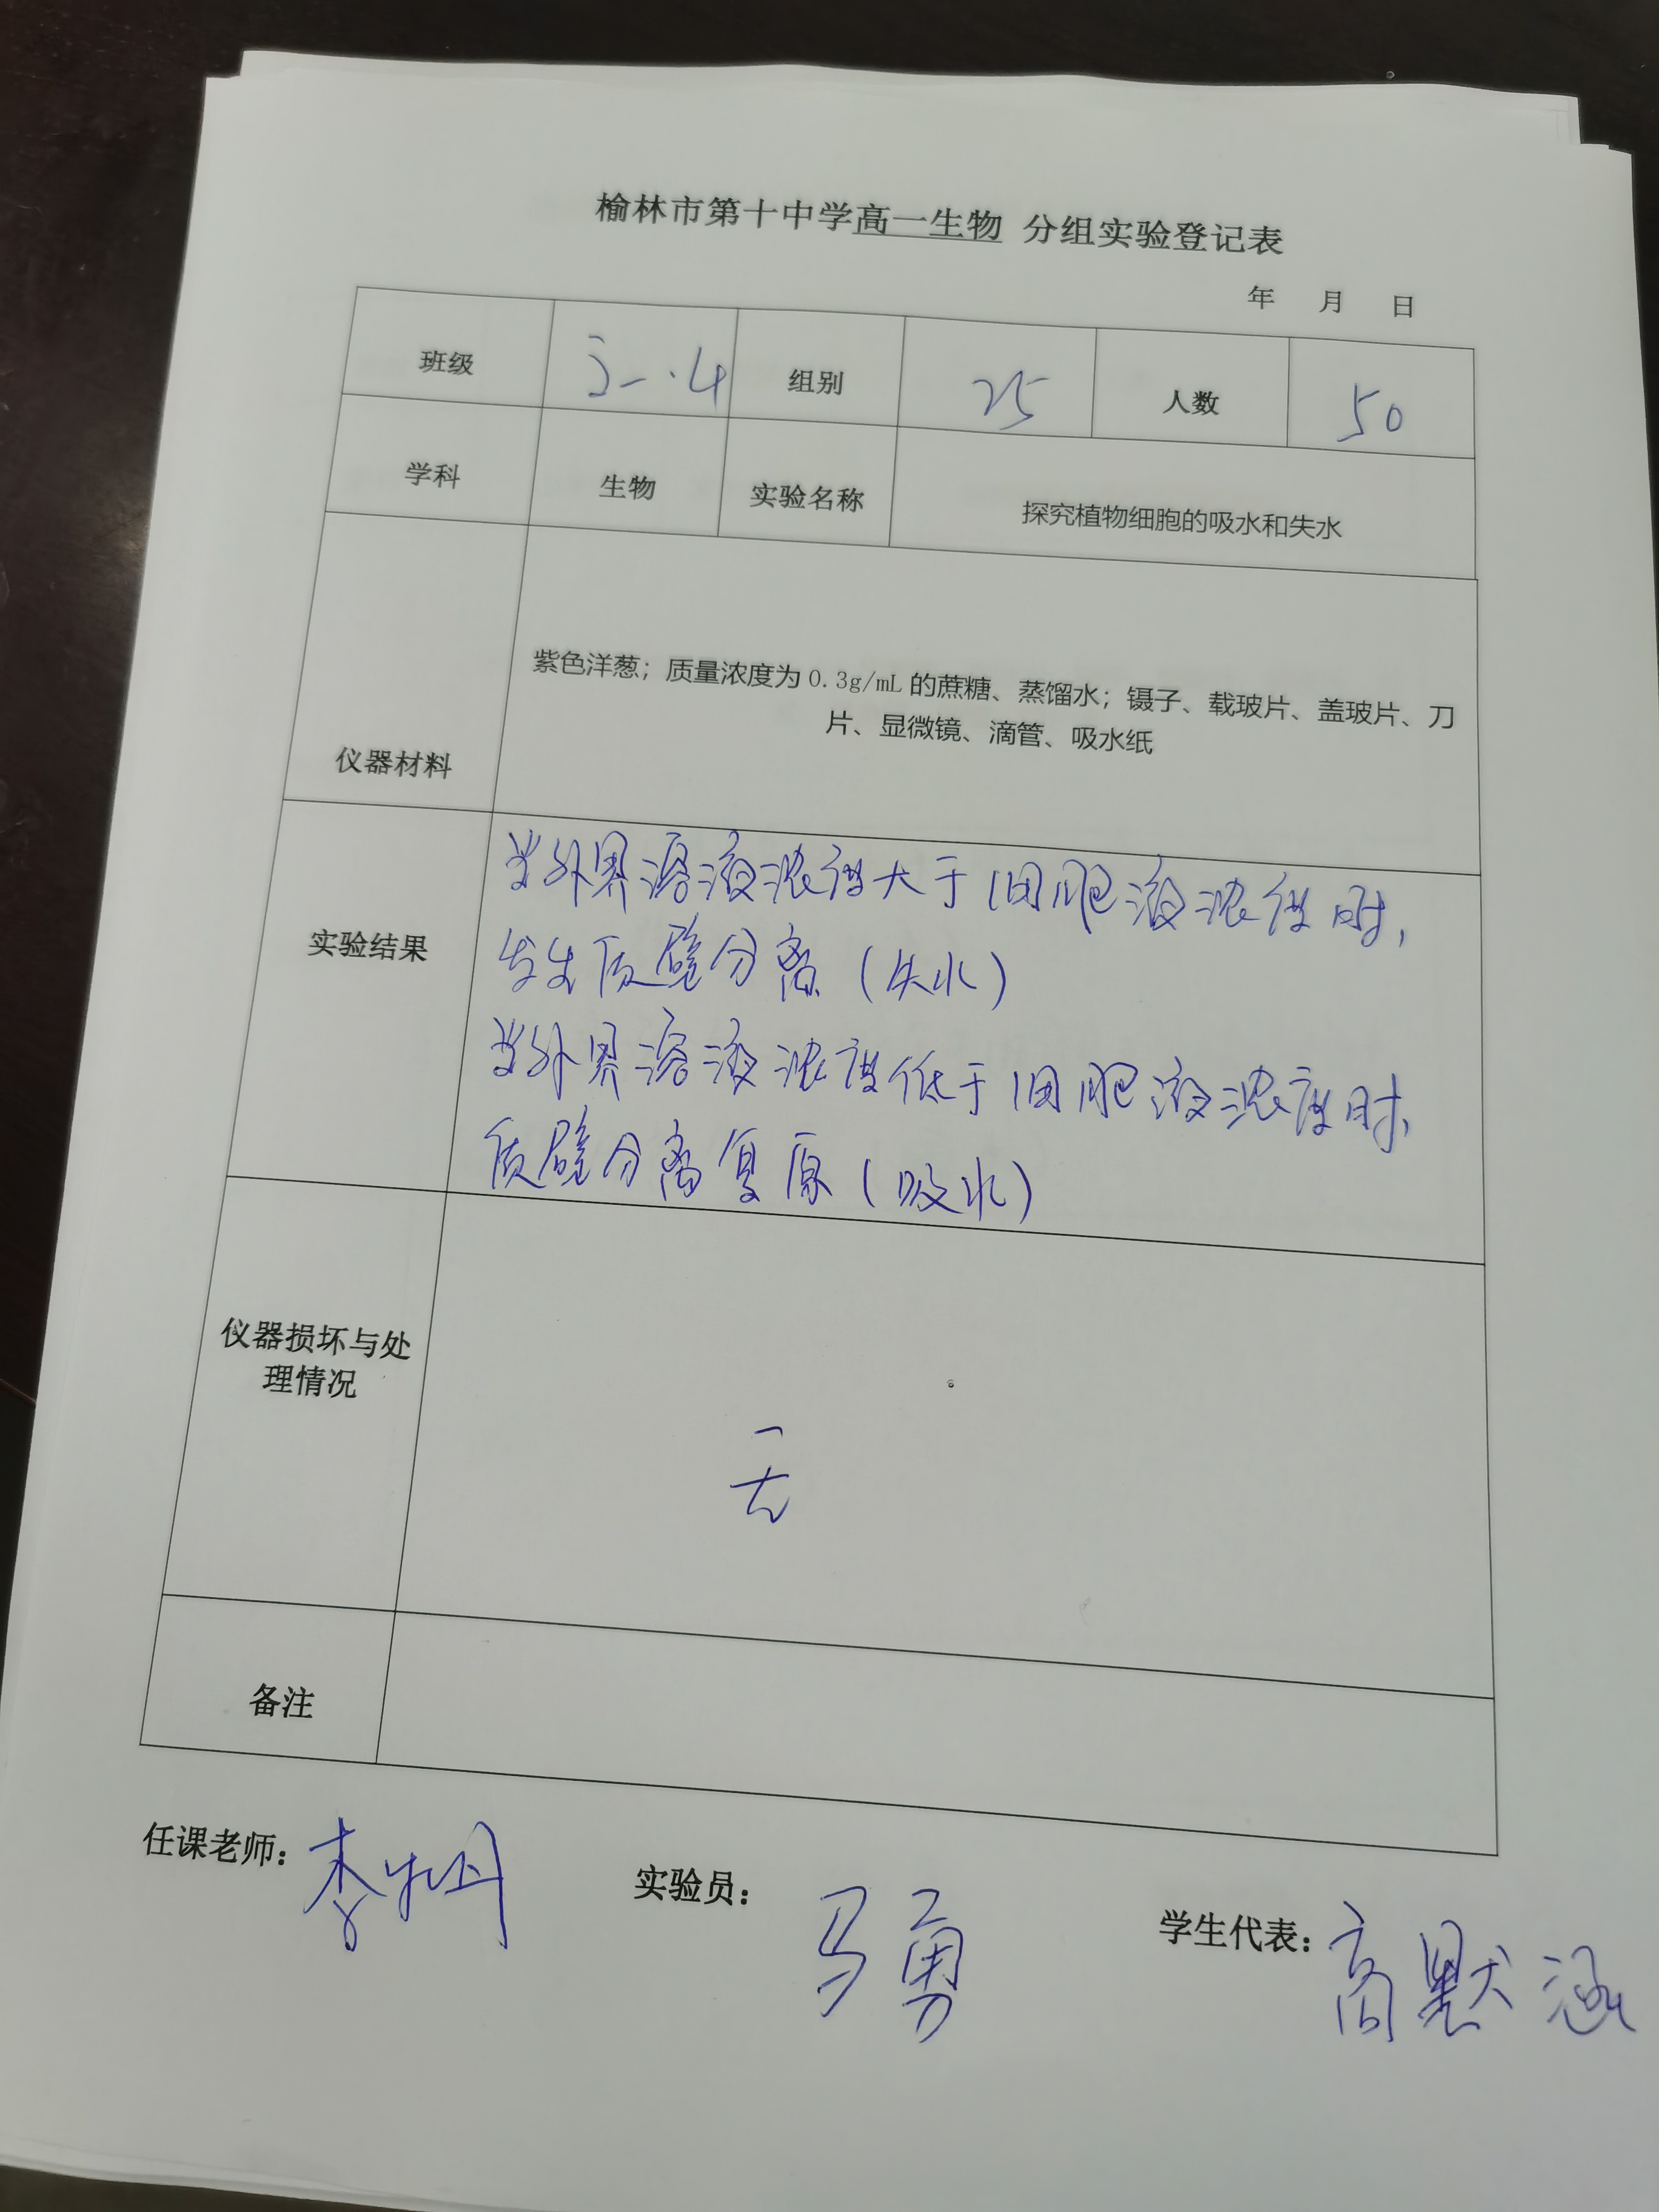 榆林市第十中学高一生物 分组实验登记表
年 月 日
班级 高一.4 组别 25 人数 50
学科 生物 实验名称 探究植物细胞的吸水和失水
仪器材料
紫色洋葱；质量浓度为0.3g/mL的蔗糖、蒸馏水；镊子、载玻片、盖玻片、刀
片、显微镜、滴管、吸水纸
实验结果
当外界溶液浓度大于细胞液浓度时,
发生质壁分离（失水）
当外界溶液浓度低于细胞液浓度时,
质壁分离复原（吸水）
仪器损坏与处
理情况
无
备注
任课老师：李 实验员：马勇 学生代表：高默涵